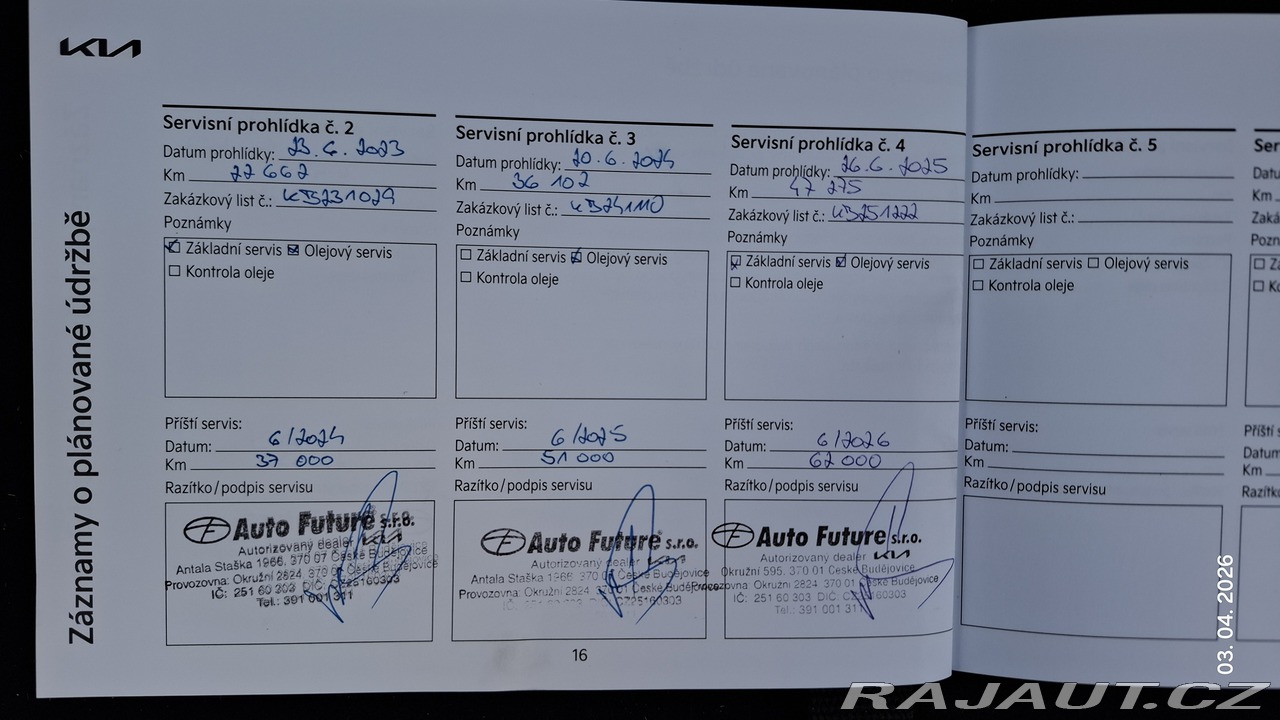 KIA
Záznamy o plánované údržbě
Servisní prohlídka č. 2
Datum prohlídky: 23.6.2023
Km 22 662
Zakázkový list č.: KB231029
Poznámky
Základní servis Olejový servis
Kontrola oleje
Příští servis:
Datum: 6/2024
Km 37 000
Razítko/podpis servisu
Auto Future s.r.o.
Autorizovaný dealer KIA
Antala Staška 1966, 370 07 České Budějovice
Provozovna: Okružní 2824, 370 01 České Budějovice
IČ: 251 60 303 DIČ: CZ25160303
Tel.: 391 001 311
Servisní prohlídka č. 3
Datum prohlídky: 20.6.2024
Km 36 102
Zakázkový list č.: KB241110
Poznámky
Základní servis Olejový servis
Kontrola oleje
Příští servis:
Datum: 6/2025
Km 51 000
Razítko/podpis servisu
Auto Future s.r.o.
Autorizovaný dealer
Antala Staška 1966, 370 07 České Budějovice
Provozovna: Okružní 2824, 370 01 České Budějovice
IČ: 251 60 303 DIČ: CZ25160303
Servisní prohlídka č. 4
Datum prohlídky: 26.6.2025
Km 47 275
Zakázkový list č.: KB251222
Poznámky
Základní servis Olejový servis
Kontrola oleje
Příští servis:
Datum: 6/2026
Km 62 000
Razítko/podpis servisu
Auto Future s.r.o.
Autorizovaný dealer KIA
Okružní 595, 370 01 České Budějovice
Provozovna: Okružní 2824, 370 01 České Budějovice
IČ: 251 60 303 DIČ: CZ25160303
Tel.: 391 001 311
16
Servisní prohlídka č. 5
Datum prohlídky:
Km
Zakázkový list č.:
Poznámky
Základní servis Olejový servis
Kontrola oleje
Příští servis:
Datum:
Km
Razítko/podpis servisu
Ser
Datu
Km
Zaká
Pozn
Zá
Ko
Příští s
Datum
Km
Razítk
03. 04. 2026
RAJAUT.CZ